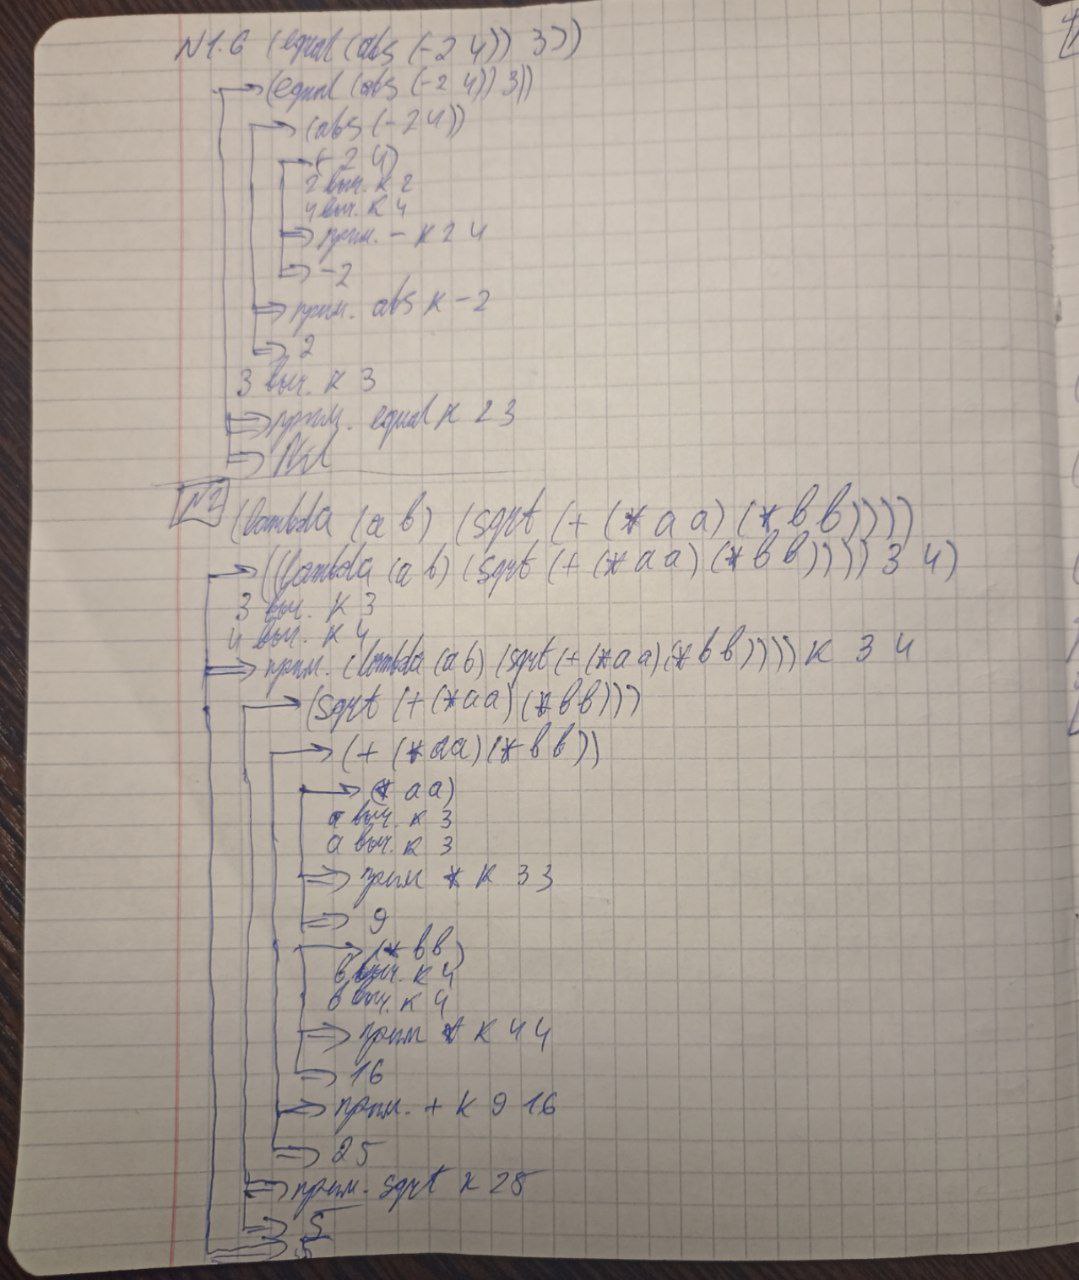 N1.6 (equal (abs (-2 4)) 3))
(equal (abs (-2 4)) 3))
(abs (-2 4))
(-2 4)
2 выч. к 2
4 выч. к 4
прим. - к 2 4
-2
прим. abs к -2
2
3 выч. к 3
прим. equal к 2 3
Nil
N2
(lambda (a b) (sqrt (+ (* a a) (* b b))))
((lambda (a b) (sqrt (+ (* a a) (* b b)))) 3 4)
3 выч. к 3
4 выч. к 4
прим. (lambda (a b) (sqrt (+ (* a a) (* b b)))) к 3 4
(sqrt (+ (* a a) (* b b)))
(+ (* a a) (* b b))
(* a a)
a выч. к 3
a выч. к 3
прим * к 3 3
9
(* b b)
b выч. к 4
b выч. к 4
прим * к 4 4
16
прим. + к 9 16
25
прим. sqrt к 25
5
5